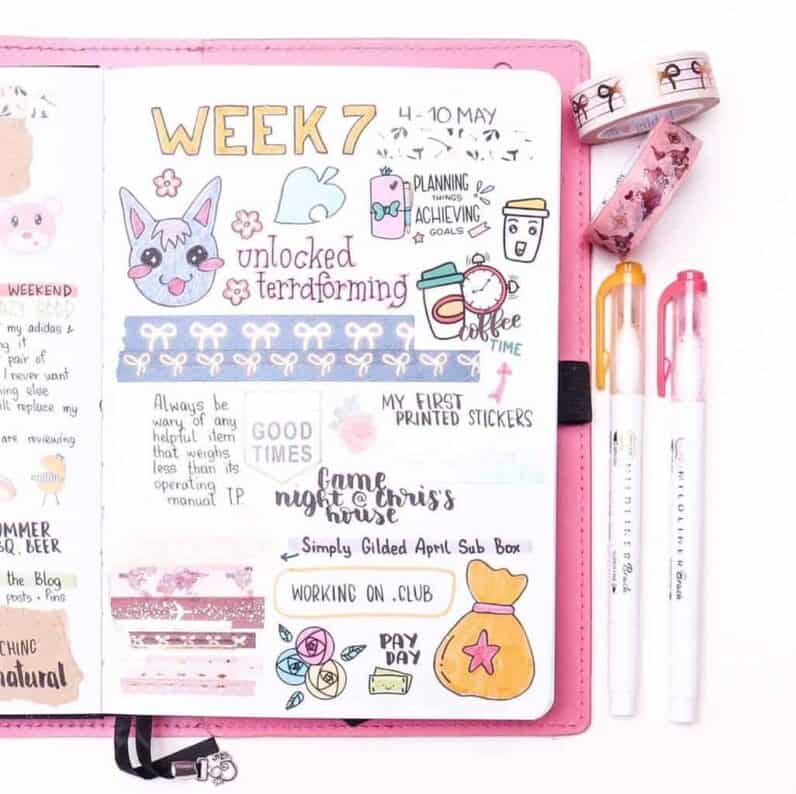 WEEKEND
my adidas &
g it
pair of
I never want
hing else
ill replace my
are reviewing
UMMER
BQ, BEER
the Blog
posts + Pins
CHING
natural
WEEK 7
4-10 MAY
PLANNING
THINGS
ACHIEVING
GOALS
unlocked
terraforming
coffee
TIME
Always be
wary of any
helpful item
that weighs
less than its
operating
manual T.P.
GOOD
TIMES
MY FIRST
PRINTED STICKERS
Game
night @ Chris's
house
Simply Gilded April Sub Box
WORKING ON .CLUB
PAY
DAY
MILDLINER Brush
MILDLINER Brush